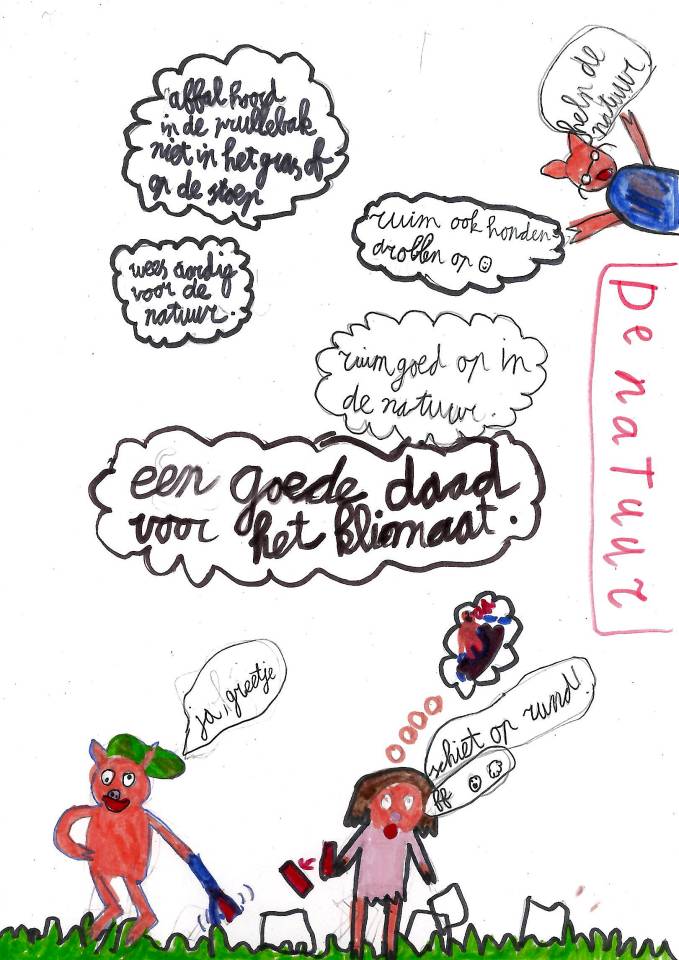 affal hoord
in de prullebak
niet in het gras of
op de stoep
help de
natuur
ruim ook honden-
drollen op
wees aardig
voor de
natuur.
ruim goed op in
de natuur.
De natuur
een goede daad
voor het kliomaat.
ja, greetje
schiet op rund!